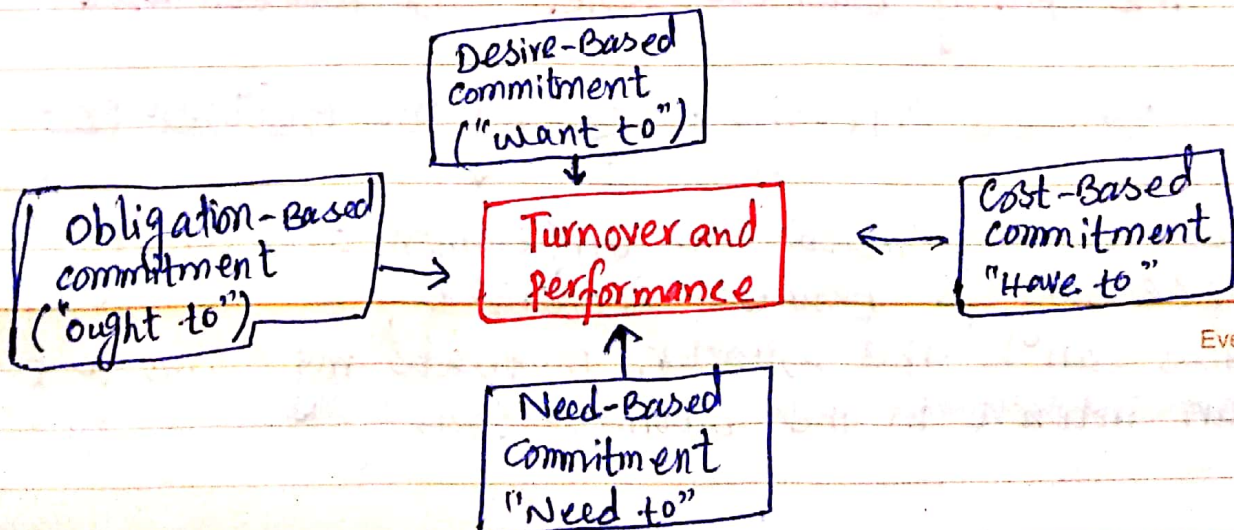 Desire-Based
commitment
("want to")
Obligation-Based
commitment
("ought to")
Turnover and
performance
Cost-Based
commitment
"Have to"
Eve
Need-Based
Commitment
"Need to"